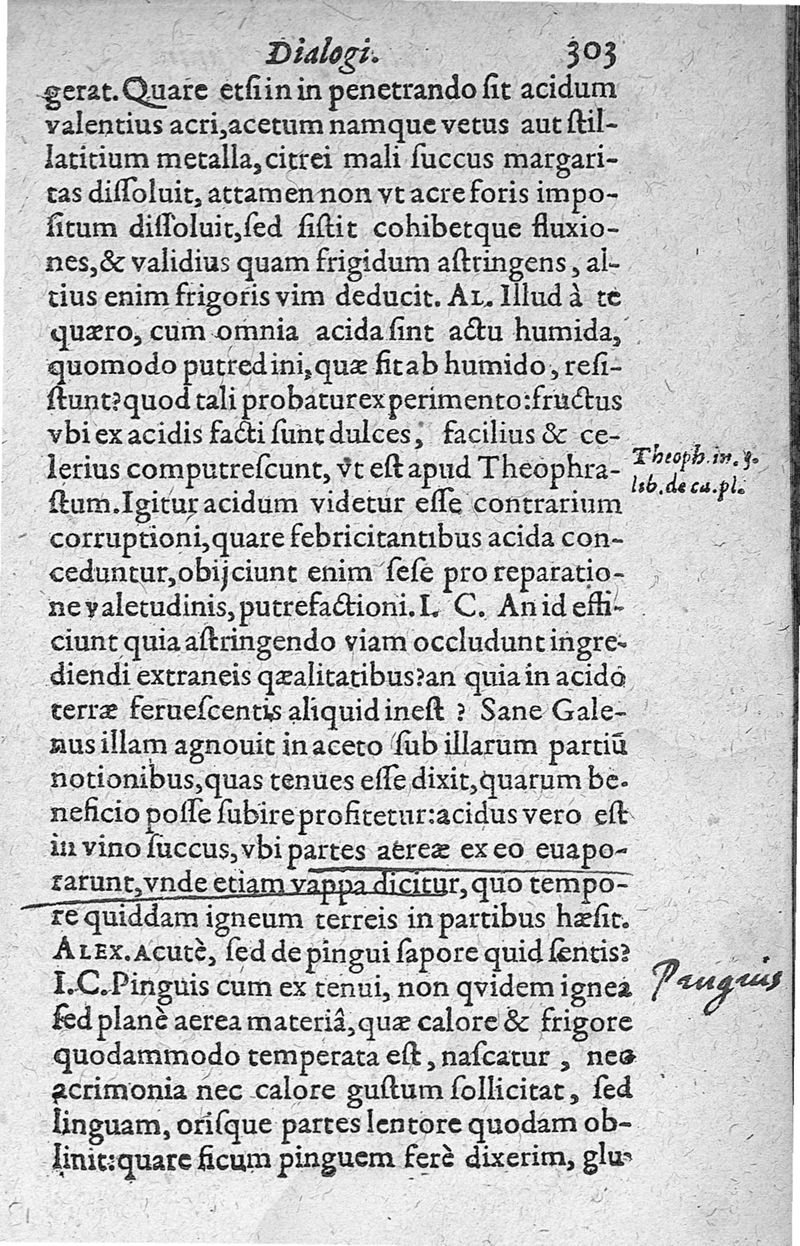 Dialogi. 303
gerat. Quare etsi in in penetrando ſit acidum
valentius acri, acetum namque vetus aut ſtil-
latitium metalla, citrei mali ſuccus margari-
tas diſſoluit, attamen non vt acre foris impo-
ſitum diſſoluit, ſed ſiſtit cohibetque fluxio-
nes, & validius quam frigidum aſtringens, al-
tius enim frigoris vim deducit. AL. Illud à te
quæro, cum omnia acida ſint actu humida,
quomodo putredini, quæ fit ab humido, reſi-
ſtunt? quod tali probatur experimento: fructus
vbi ex acidis facti ſunt dulces, facilius & ce-
lerius computreſcunt, vt eſt apud Theophra-
Theoph. in. 3.
lib. de ca. pl.
ſtum. Igitur acidum videtur eſſe contrarium
corruptioni, quare febricitantibus acida con-
ceduntur, obijciunt enim ſeſe pro reparatio-
ne valetudinis, putrefactioni. I. C. An id effi-
ciunt quia aſtringendo viam occludunt ingre-
diendi extraneis qæalitatibus? an quia in acido
terræ ferueſcentis aliquid ineſt ? Sane Gale-
nus illam agnouit in aceto ſub illarum partiũ
notionibus, quas tenues eſſe dixit, quarum be-
neficio poſſe ſubire profitetur: acidus vero eſt
in vino ſuccus, vbi partes aereæ ex eo euapo-
rarunt, vnde etiam vappa dicitur, quo tempo-
re quiddam igneum terreis in partibus hæſit.
ALEX. Acutè, ſed de pingui ſapore quid ſentis?
I. C. Pinguis cum ex tenui, non qvidem ignea
Pinguis
ſed planè aerea materiâ, quæ calore & frigore
quodammodo temperata eſt, naſcatur, nec
acrimonia nec calore guſtum ſollicitat, ſed
linguam, oriſque partes lentore quodam ob-
linit: quare ficum pinguem ferè dixerim, glu-